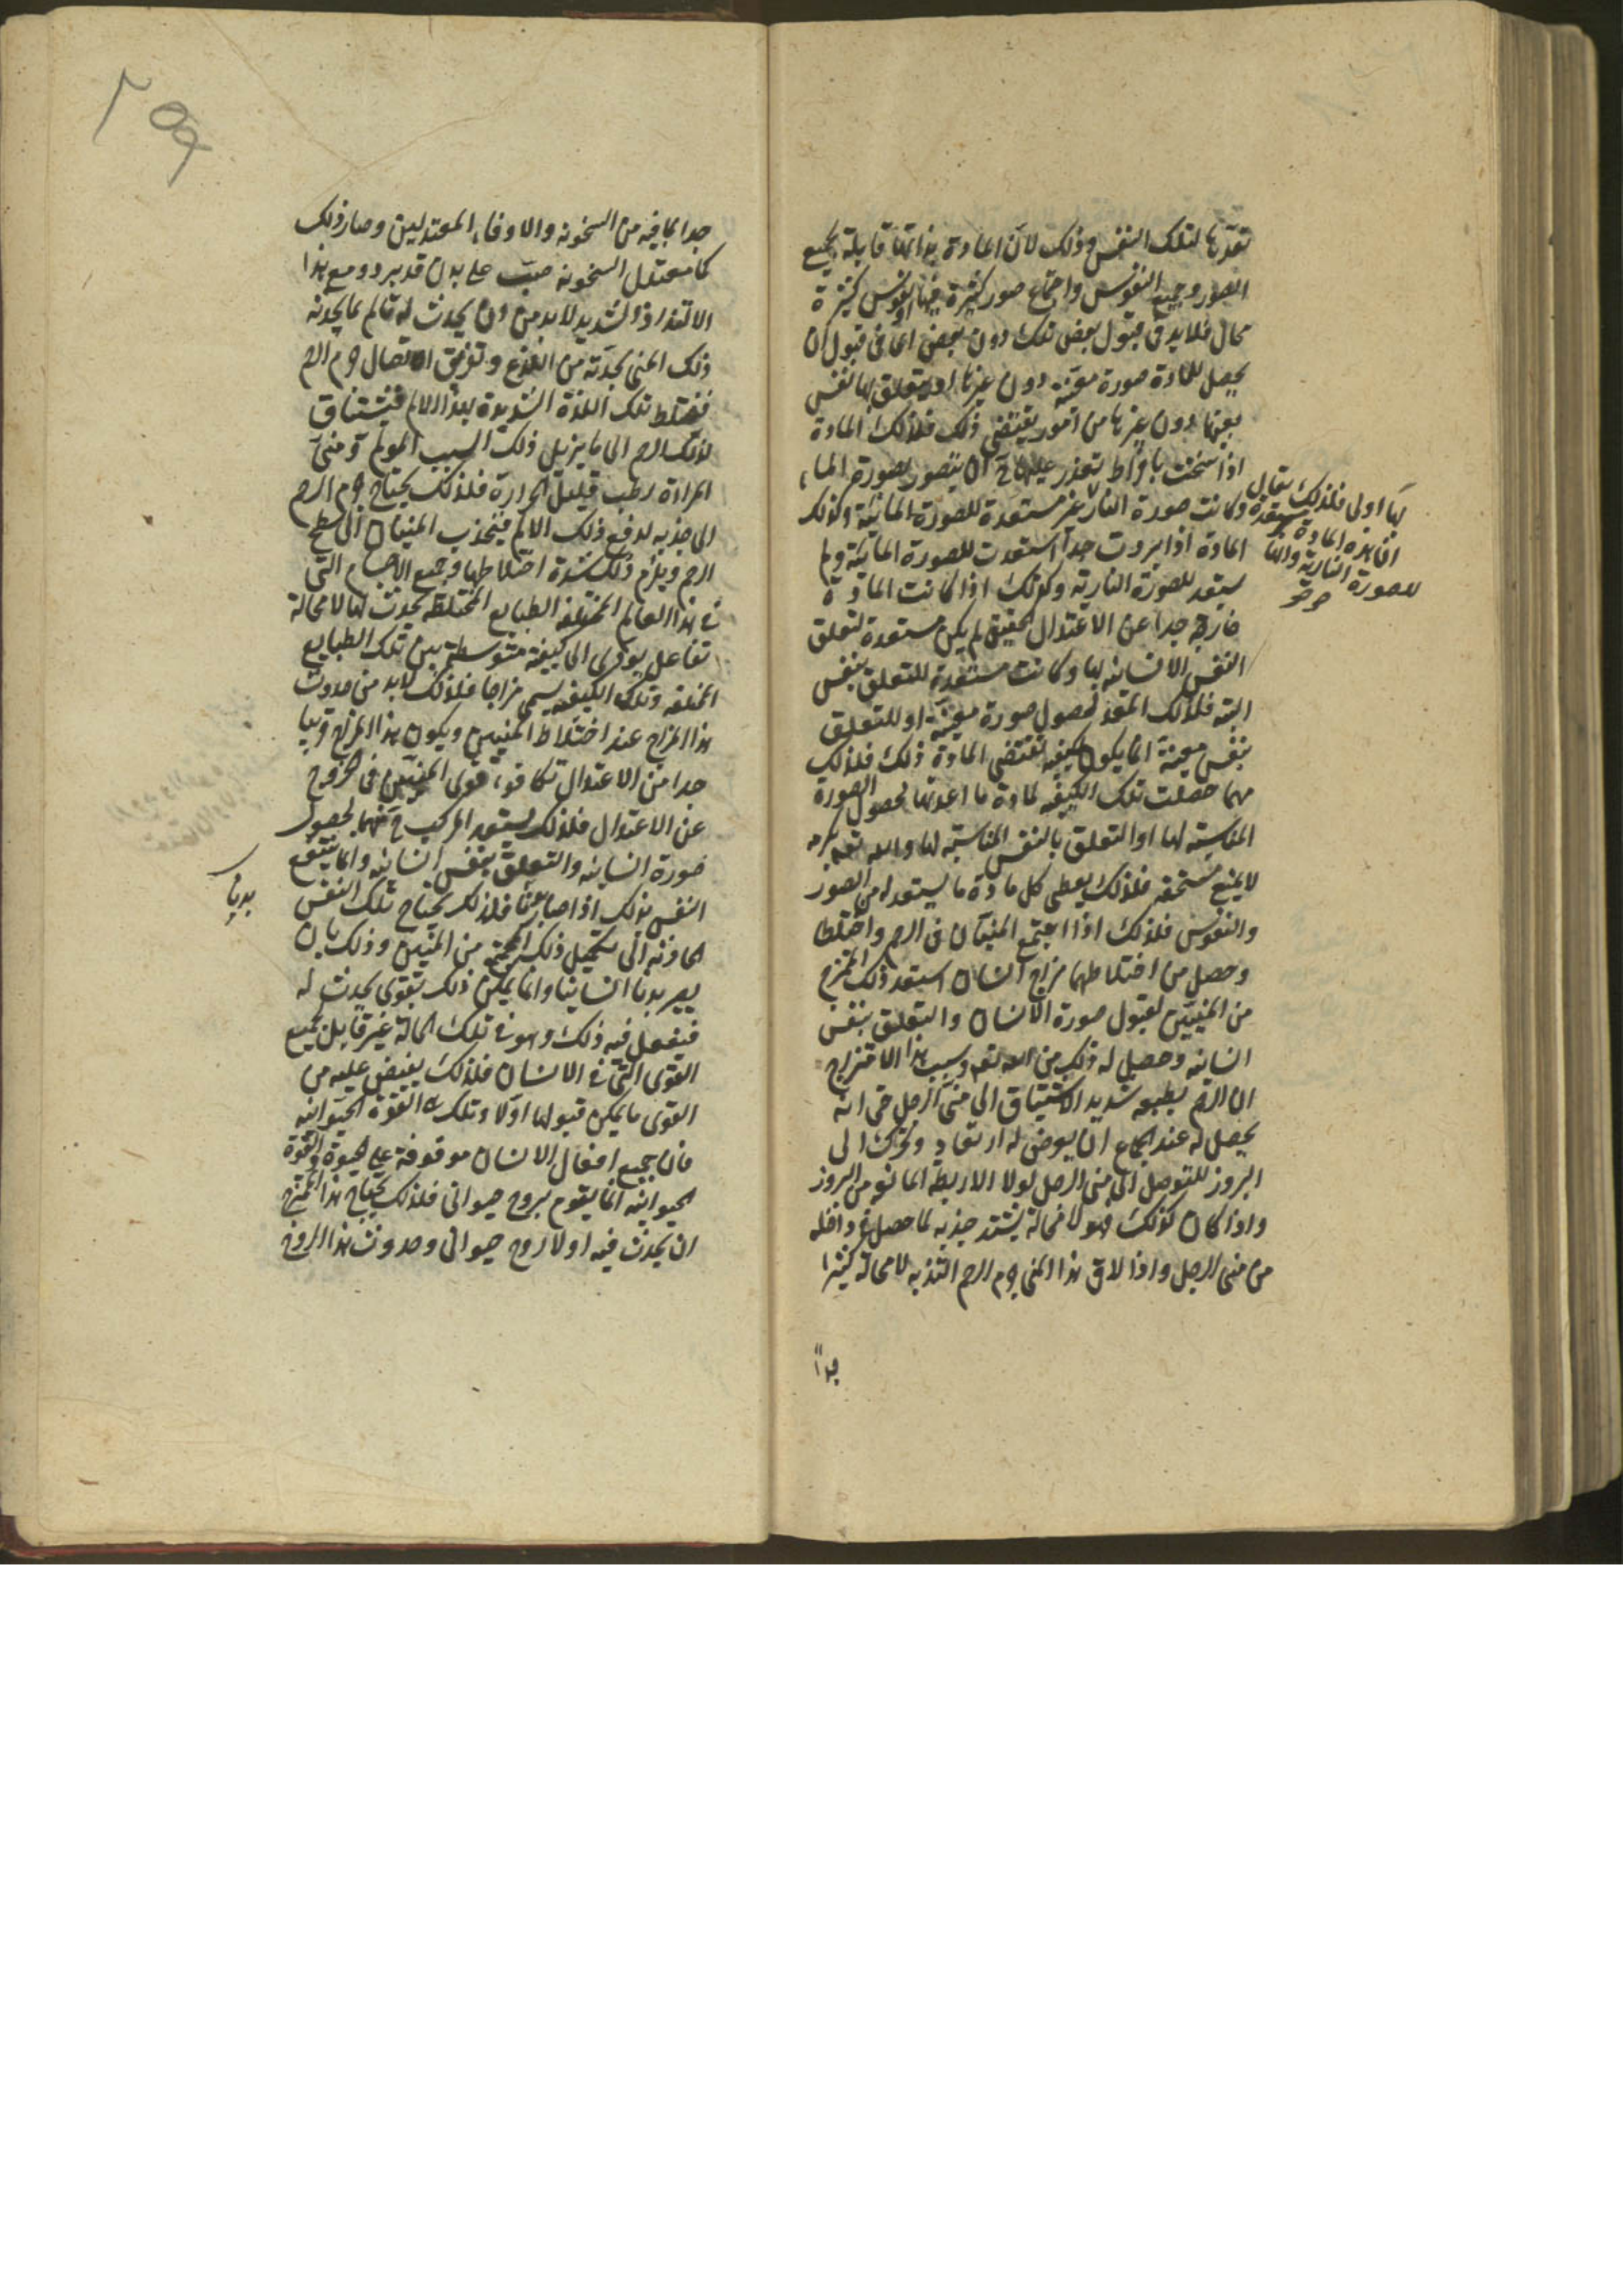 تعدّها لتلك النفس وذلك لان المادة بذاتها قابلة لجميع
الصور وجميع النفوس واجتماع صور كثيرة فيها او نفوس كثيرة
محال فلابد في قبول بعض تلك دون بعض اعنى في قبول ان
يحصل للمادة صورة معينة دون غيرها او يتعلق بها نفس
بعينها دون غيرها من امور يقتضى ذلك فلذلك المادة
اذا سخنت بافراط تعذر عليها ح ان يتصور بصورة الماء
وكانت صورة النار غير مستعدة للصورة المائية وكذلك
المادة اذا بردت جدا استعدت للصورة المائية ولم
يستعد للصورة النارية وكذلك اذا كانت المادة
خارجة جدا عن الاعتدال الحقيقى لم يكن مستعدة لتعلق
النفس الانسانيه بها وكانت مستعدة للتعلق بنفس
البته فلذلك المعد لحصول صورة معينة او للتعلق
بنفس معينة انما يكون بكيفيه تقتضى المادة ذلك فلذلك
مهما حصلت تلك الكيفيه لمادة ما اعدتها لحصول الصورة
المناسبة لها او التعلق بالنفس المناسبة لها والله تعم بكرمه
لا يمنع مستحقه فلذلك يعطى كل مادة ما يستعد له من الصور
والنفوس فلذلك اذا اجتمع المنيان فى الرحم واختلطا
وحصل من اختلاطهما مزاج انسان استعد ذلك الممتزج
من المنيين لقبول صورة الانسان والتعلق بنفس
انسانيه وحصل له ذلك من الله تعم وسبب هذا الامتزاج
ان الرحم بطبعه شديد الاشتياق الى منى الرجل حتى انه
يحصل له عند الجماع ان يعرض له ارتعاد وتحرك الى
البروز للتوصل الى منى الرجل لولا الاربطة المانعه من البروز
واذا كان كذلك فهو لا محالة يشتد جذبه لما حصل فى داخله
من منى الرجل واذا لاقى هذا المنى جرم الرحم التذ به لا محالة كثيرا
جداً
بها اولى فلذلك يقال
ان هذه المادة مستعدة
للصورة النارية واما
جدا بما فيه من السخونه والاوفاء المعتدلين وصار ذلك
كماء معتدل السخونه صبّ على بدن قد برد ومع هذا
الالتذاذ الشديد لابد من وان يحدث له تالم بما يحدثه
ذلك المنى بحدّته من اللذع وتفريق اتصال جرم الرحم
فتختلط تلك اللذة الشديدة بهذا الالم فيشتاق
لذلك الرحم الى ما يزيل ذلك السبب المولم ومنىّ
المراة رطب قليل الحرارة فلذلك يحتاج جرم الرحم
الى جذبه لدفع ذلك الالم فينجذب المنيان الى سطح
الرحم ويلزم ذلك شدة اختلاطهما وجميع الاجسام التى
فى هذا العالم المختلفة الطبايع المختلطة يحدث لها لا محالة
تفاعل يودى الى كيفية متوسطة بين تلك الطبايع
المختلفه وتلك الكيفيه يسمى مزاجا فلذلك لابد من حدوث
هذا المزاج عند اختلاط المنيين ويكون هذا المزاج قريبا
جدا من الاعتدال لتكافوء قوى المنيين فى الخروج
عن الاعتدال فلذلك يستعد المركب ح منهما لحصول
صورة انسانيه والتعلق بنفس انسانيه وانما ينتفع
النفس بذلك اذا صار بدنا فلذلك يحتاج تلك النفس
الحادثه الى تكميل ذلك المجتمع من المنيين وذلك بان
يصير بدنا انسانيا وانما يمكن ذلك بقوى يحدث له
فتفعل فيه ذلك وهو فى تلك الحالة غير قابل لجميع
القوى التى فى الانسان فلذلك يفيض عليه من
القوى ما يمكن قبولها اولا وتلك هى القوة الحيوانيه
فان جميع افعال الانسان موقوفة على الحيوة والقوة
الحيوانيه انما يقوم بروح حيوانى فلذلك يحتاج هذا الممتزج
ان يحدث فيه اولا روح حيوانى وحدوث هذا الروح